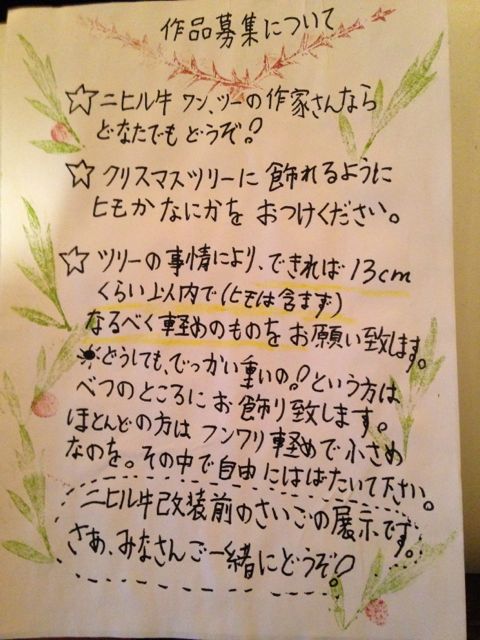 作品募集について
☆ニヒル牛ワン、ツーの作家さんなら
どなたでもどうぞ!
☆クリスマスツリーに飾れるように
ヒモかなにかをおつけください。
☆ツリーの事情により、できれば13cm
くらい以内で(ヒモは含まず)
なるべく軽めのものをお願い致します。
※どうしても、でっかい重いの!という方は
べつのところにお飾り致します。
ほとんどの方はフンワリ軽めで小さめ
なのを。その中で自由にはばたいて下さい。
ニヒル牛改装前のさいごの展示です。
さあ、みなさんご一緒にどうぞ!